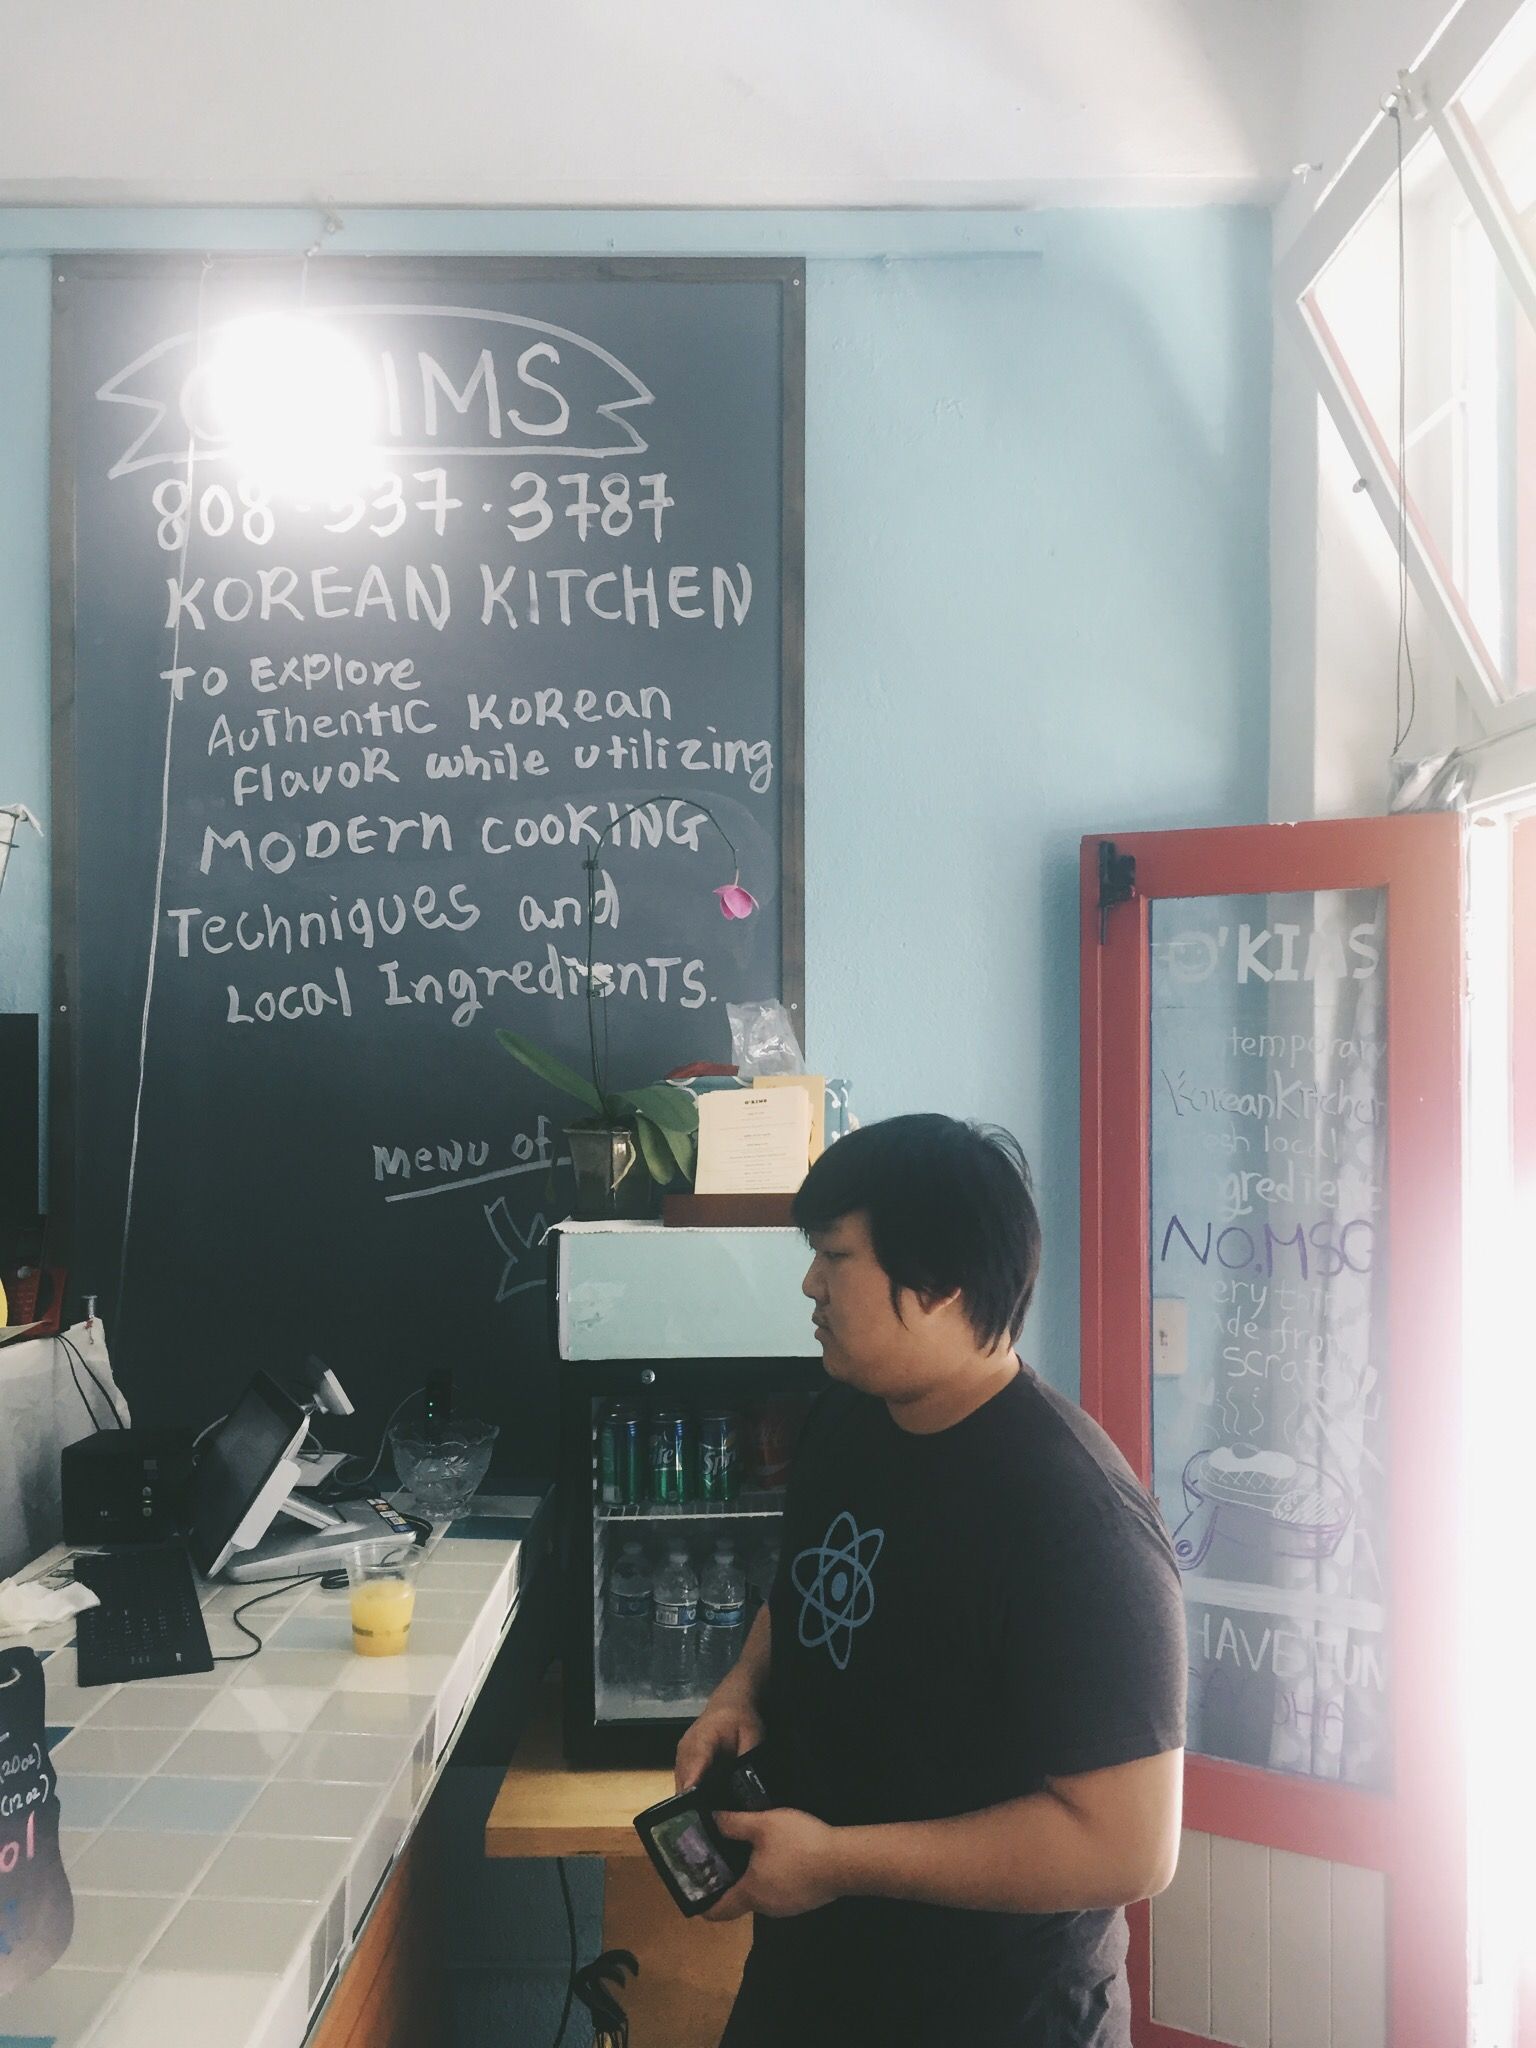 KIMS
808·537·3787
KOREAN KITCHEN
TO EXPlore
AuThentIC KoRean
FlavoR while utilizing
MODErn COOKING
Techniques and
Local IngredienTS.
MENU OF
O'KIMS
O'KIMS
temporary
Korean Kitchen
esh local
gredient
NO.MSG
erythin
de from
scratch
HAVE FUN
Sprite
(20oz)
(12oz)